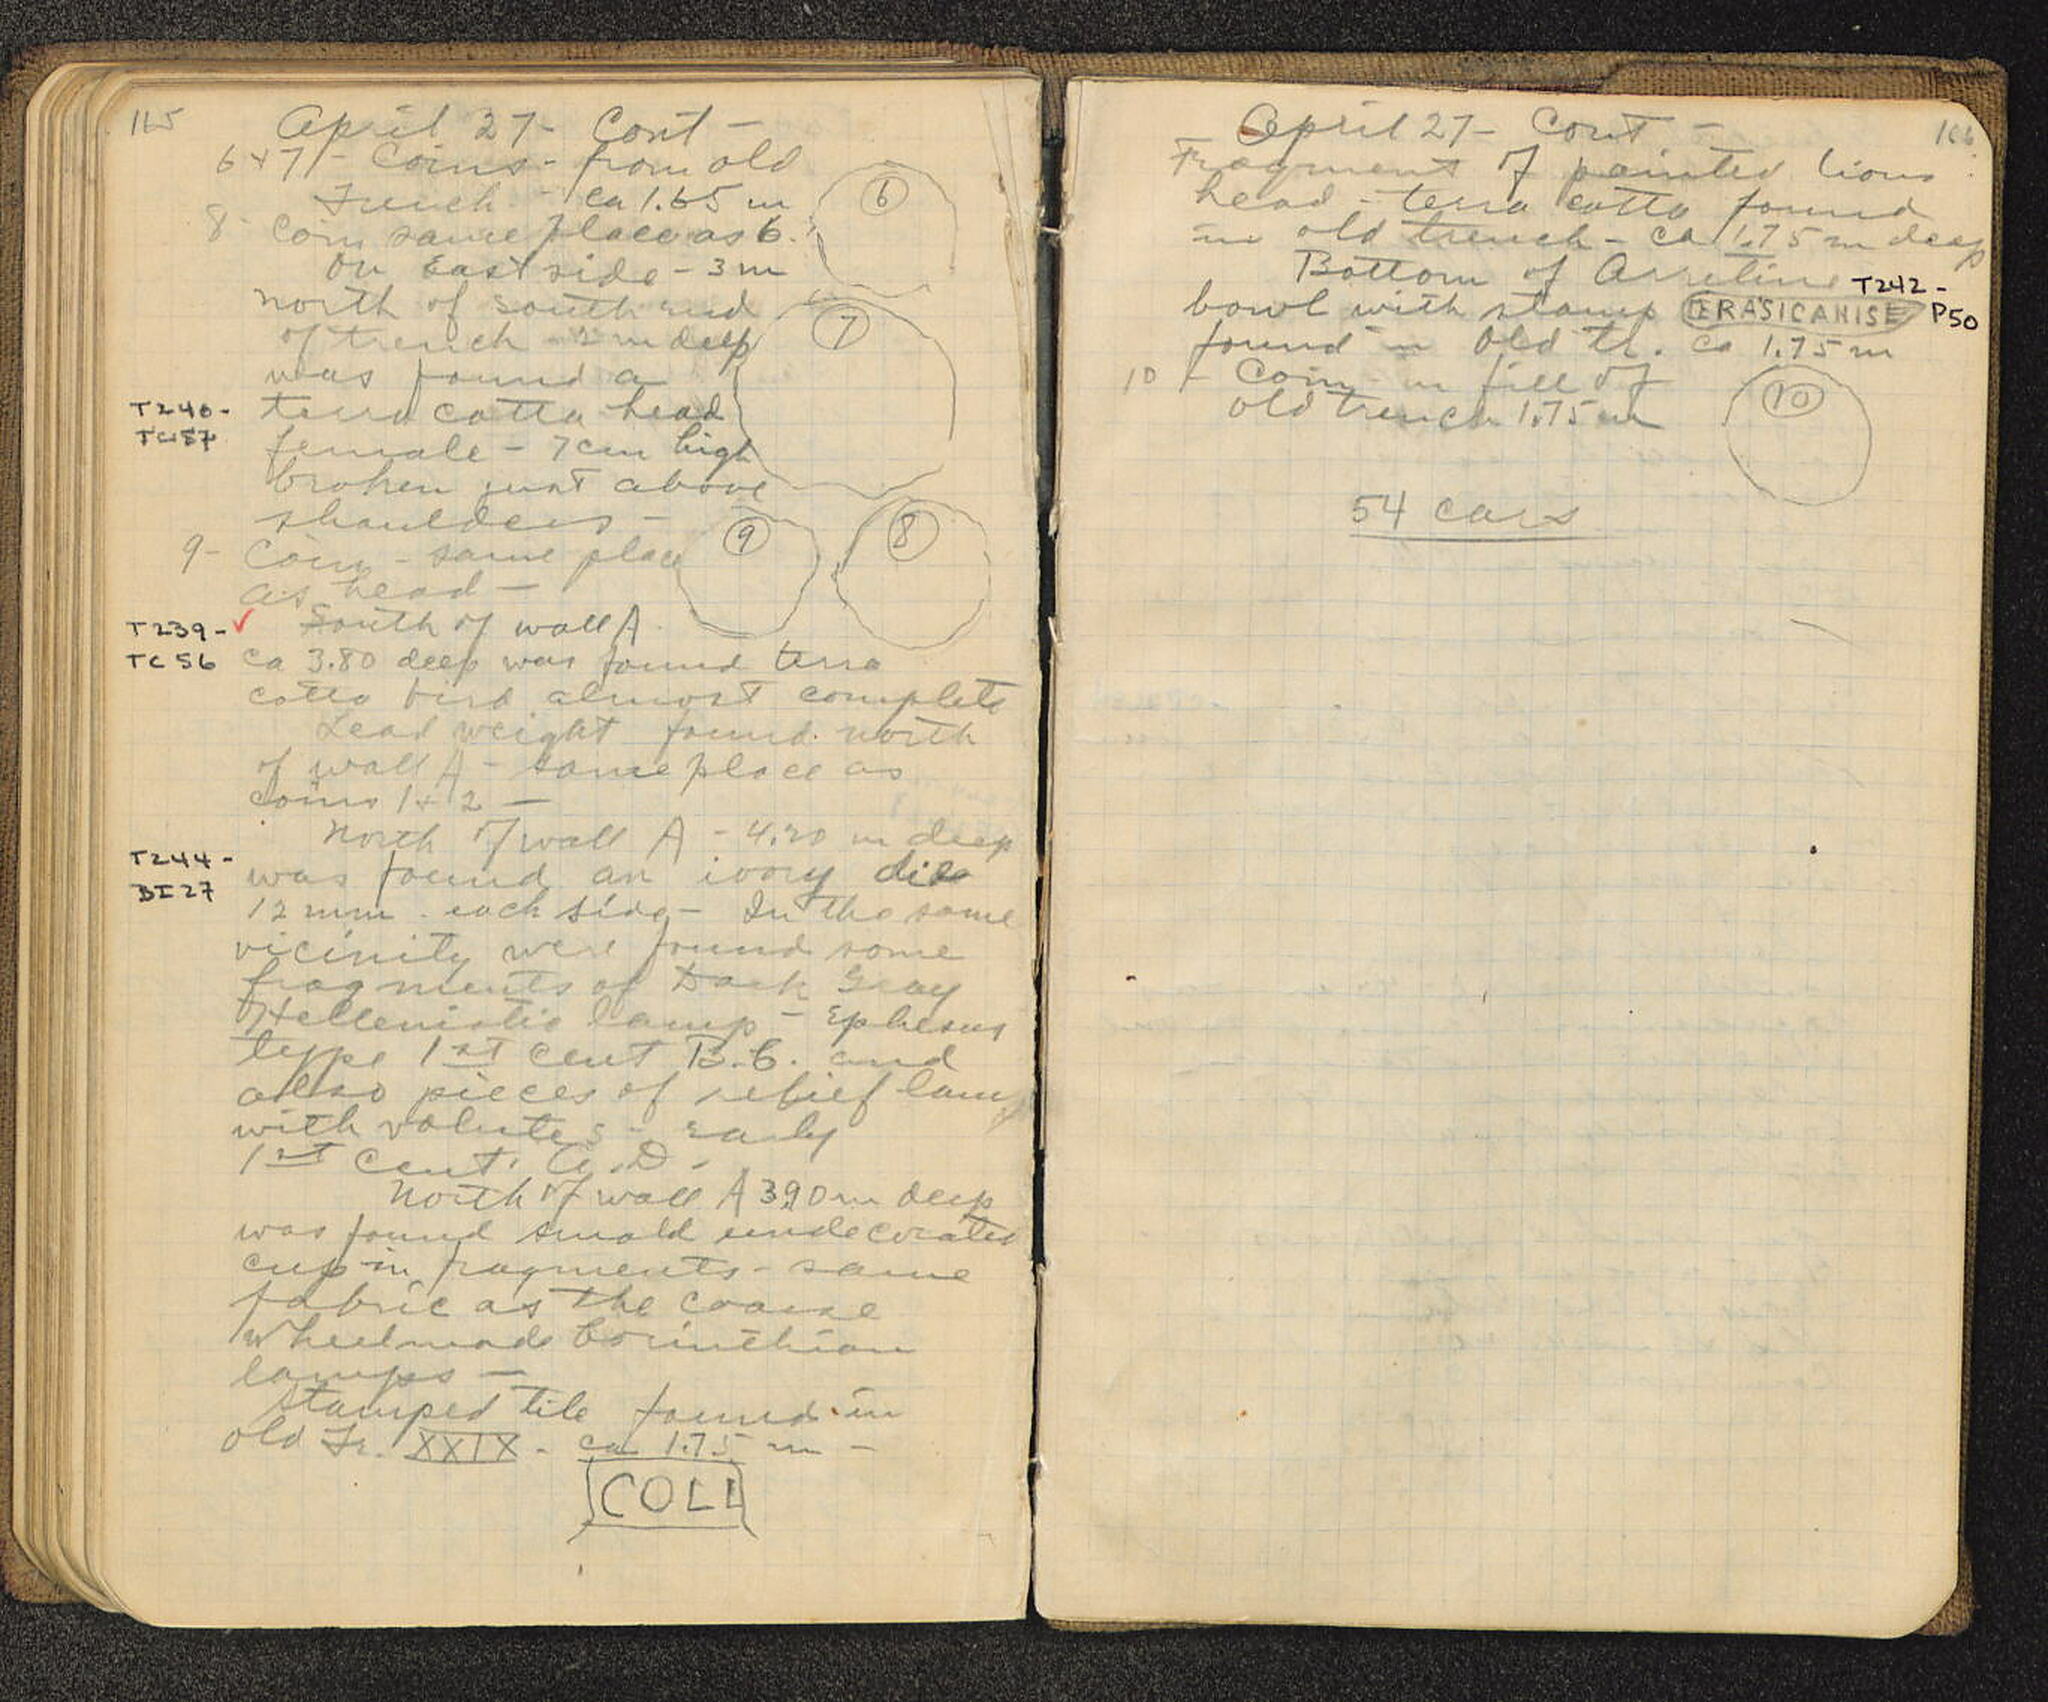 165
April 27 - Cont -
6 + 7 - Coins - from old
Trench - ca 1.65 m
8 - Coin same place as 6.
On East side - 3 m
north of south end
of trench - 2 m deep
was found a
T240 - terra cotta head
TC57 female - 7 cm high
broken just above
shoulders -
9 - Coin - same place
as head -
6
7
9
8
T239 - ✓ South of wall A
TC56 ca 3.80 deep was found terra
cotta bird almost complete
Lead weight found north
of wall A - same place as
coins 1 + 2 -
North of wall A - 4.20 m deep
T244 - was found an ivory die
BI27 12 mm. each side - In the same
vicinity were found some
fragments of Dark Gray
Hellenistic lamp - Ephesus
type 1st cent B.C. and
also pieces of relief lamp
with volutes - early
1st cent. A.D.
North of wall A 3.90 m deep
was found small undecorated
cup in fragments - same
fabric as the coarse
wheelmade Corinthian
lamps -
Stamped tile found in
old Tr. XXIX - ca 1.75 m -
COLI
April 27 - Cont -
166
Fragment of painted lions
head - terra cotta found
in old trench - ca 1.75 m deep
Bottom of Arretine T242 -
bowl with stamp P50
found in Old Tr. ca 1.75 m
10 - Coin - in fill of
old trench 1.75 m
10
54 cars